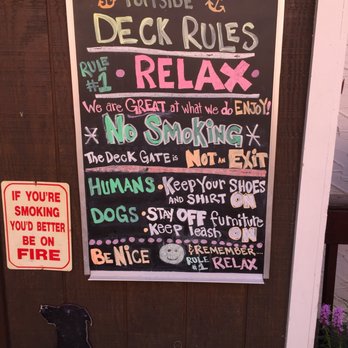 OUTSIDE
DECK RULES
RULE #1 • RELAX •
We are GREAT at what we do ENJOY!
* No SMOKING *
THE DECK GATE is NOT an EXIT
HUMANS • KEEP YOUR SHOES
AND SHIRT ON
DOGS • STAY OFF furniture
• Keep leash ON
BE NICE
& REMEMBER...
RULE #1 RELAX
IF YOU'RE
SMOKING
YOU'D BETTER
BE ON
FIRE